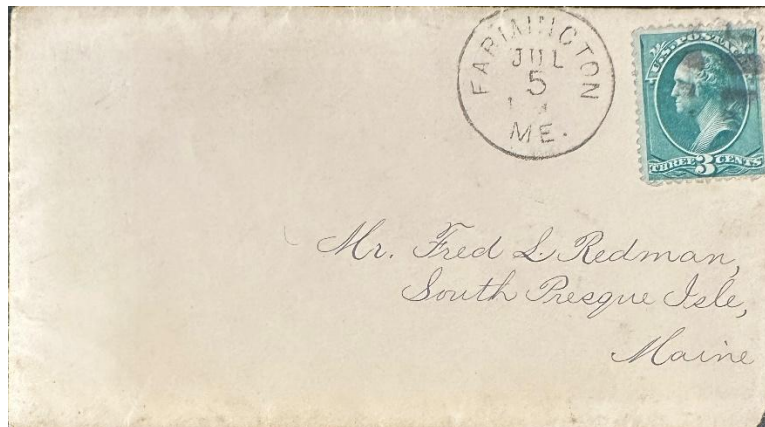 FARMINGTON
JUL
5
ME.
U.S. POSTAGE
THREE 3 CENTS
Mr. Fred L. Redman,
South Presque Isle,
Maine